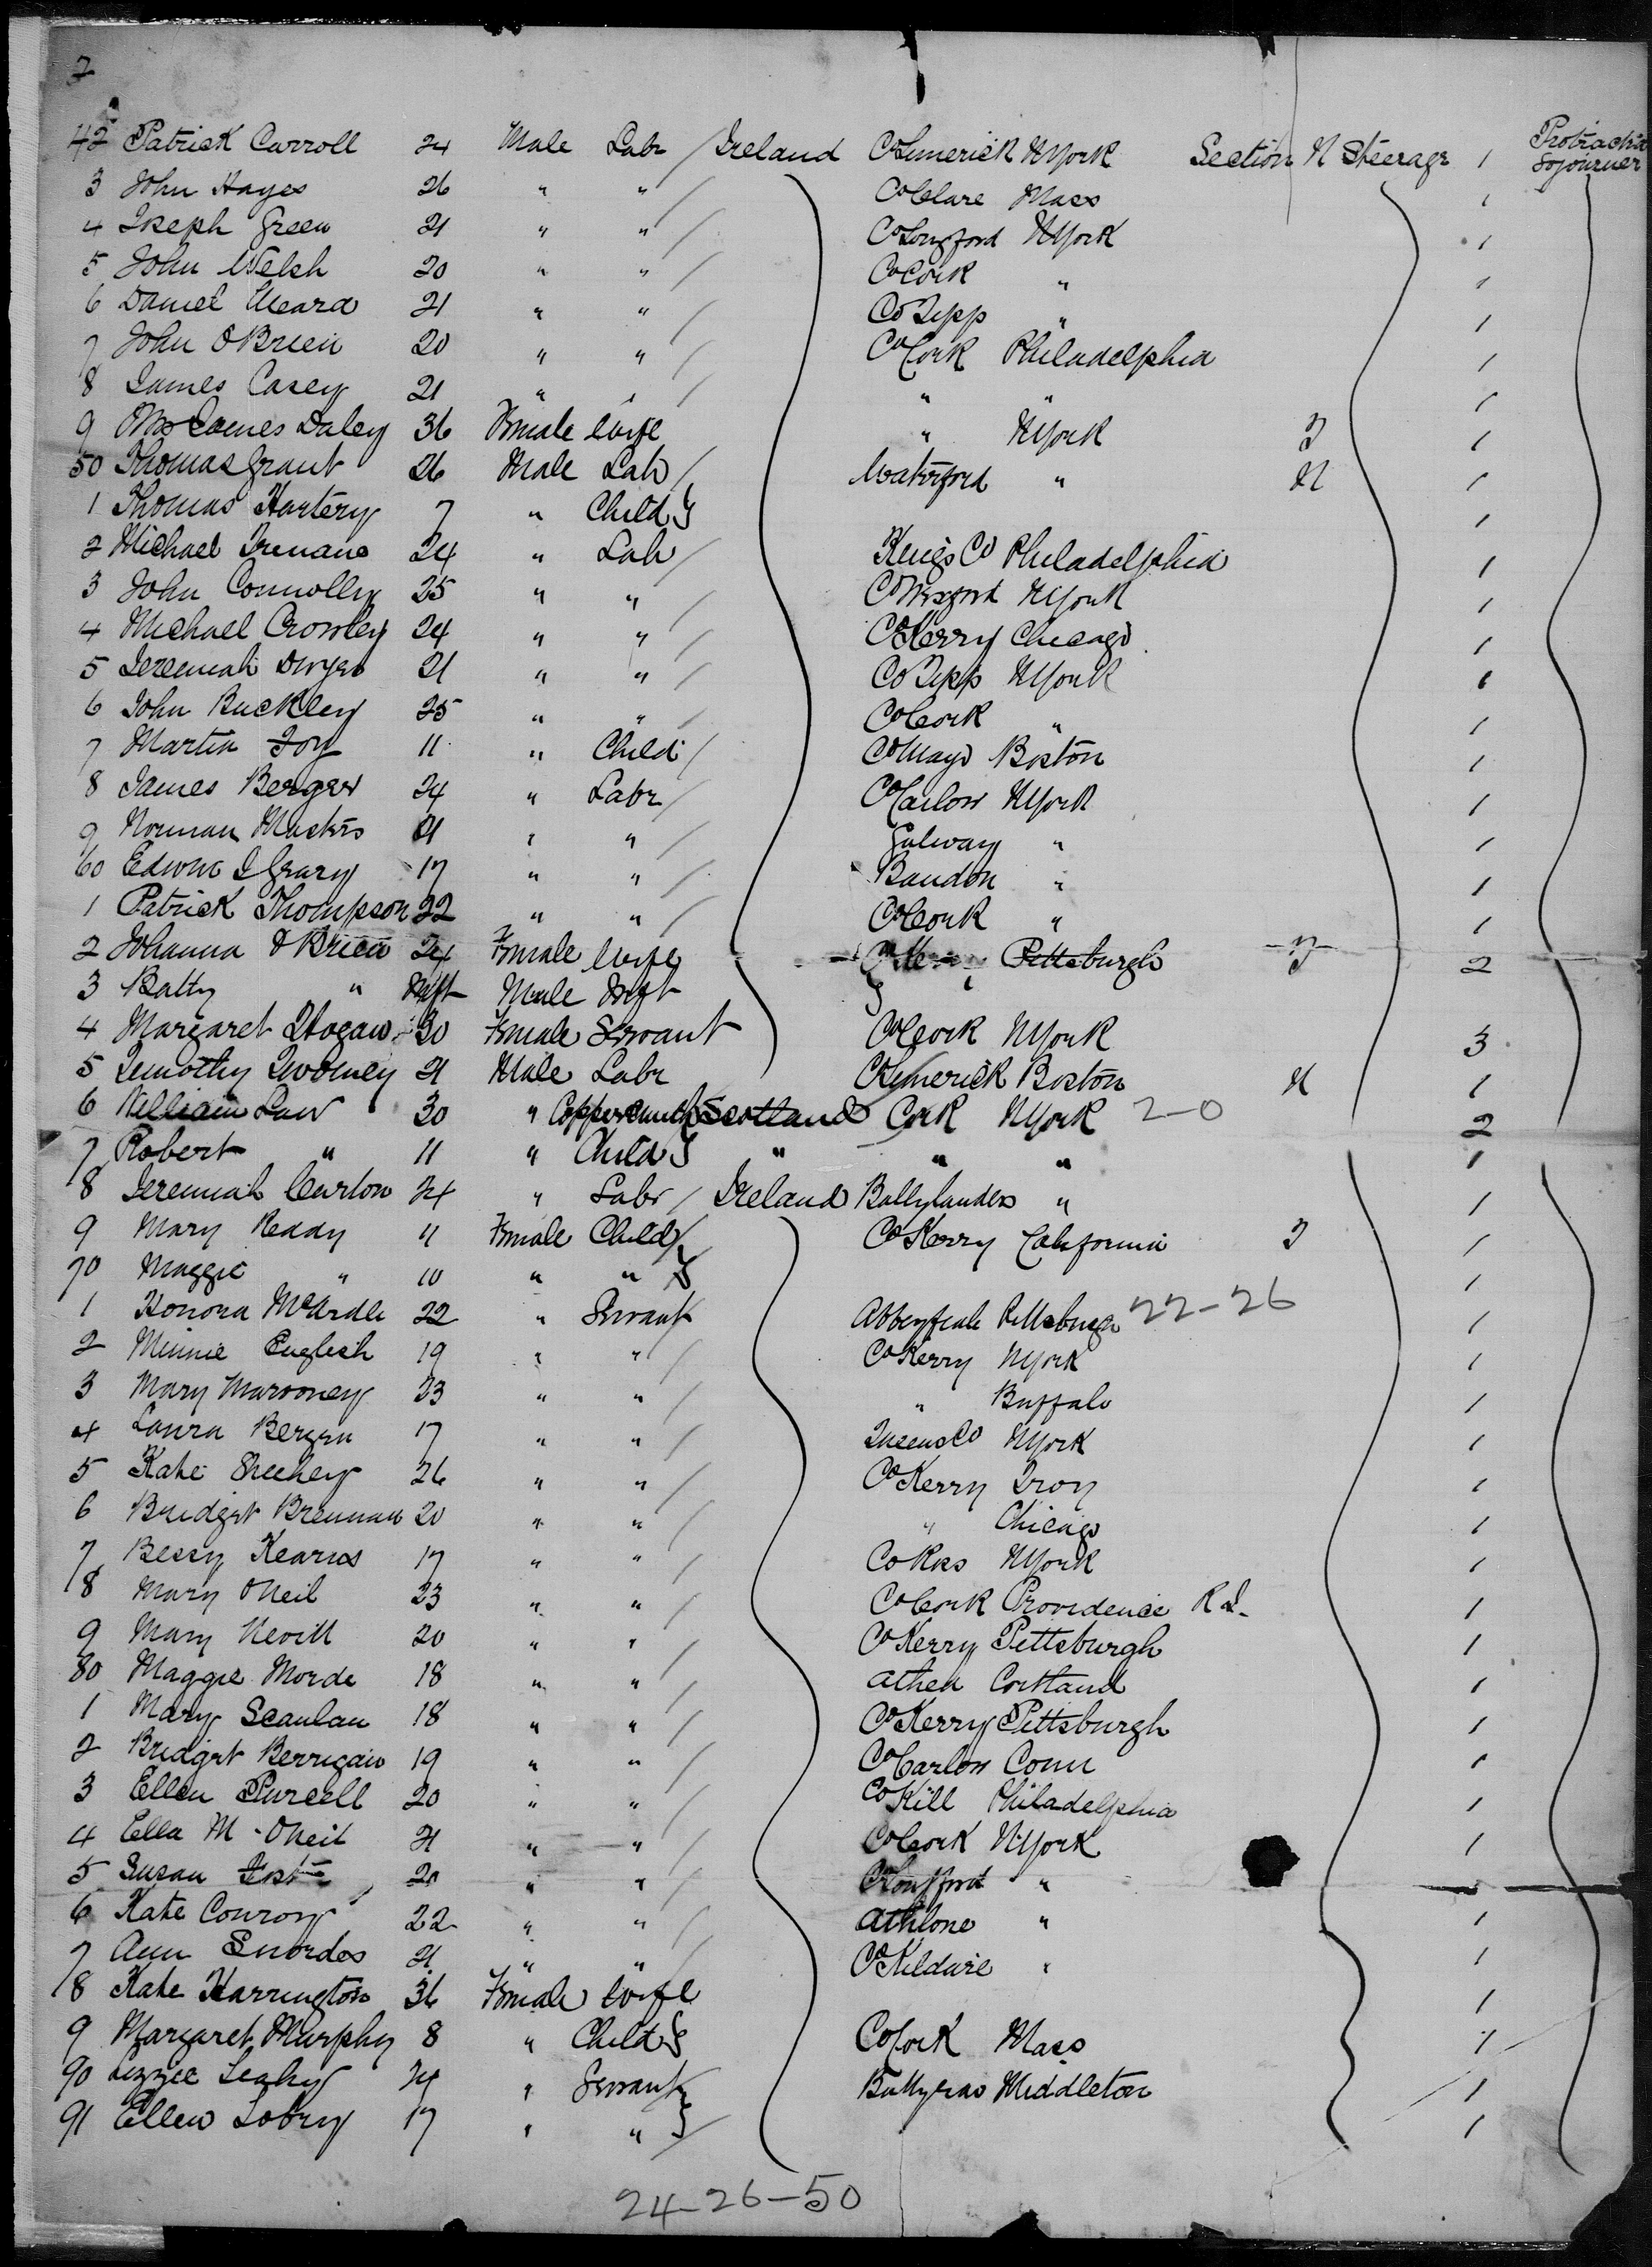 7
42 Patrick Carroll 24 Male Labr / Ireland Co Limerick NYork Section N Steerage 1 Protracted Sojourner
3 John Hayes 26 " " / Co Clare Mass 1
4 Joseph Green 21 " " / Co Longford NYork 1
5 John Welsh 20 " " / Co Cork " 1
6 Daniel Meara 21 " " / Co Tipp " 1
7 John OBrien 20 " " / Co Cork Philadelphia 1
8 James Casey 21 " " / " " 1
9 Mrs James Daley 36 Female Wife " NYork 1
50 Thomas Grant 26 Male Lab / Waterford " N 1
1 Thomas Hartery 7 " Child 1
2 Michael 24 " Lab / Kings Co Philadelphia 1
3 John Connolly 25 " " / Co Wexford NYork 1
4 Michael Crowley 24 " " / Co Kerry Chicago 1
5 Jeremiah Dwyer 21 " " / Co Tipp NYork 1
6 John Buckley 25 " " / Co Cork " 1
7 Martin Foy 11 " Child / Co Mayo Boston 1
8 James Bergen 24 " Labr / Co Carlow NYork 1
9 Norman Masters 21 " " / Galway " 1
60 Edwin J Geary 17 " " / Bandon " 1
1 Patrick Thompson 22 " " / Co Cork " 1
2 Johanna OBrien 24 Female Wife Pittsburgh 2
3 Batty " Inft Male Inft
4 Margaret Hogan 30 Female Servant Co Cork NYork 3
5 Timothy Twomey 21 Male Labr Co Limerick Boston N 1
6 William Law 30 " Coppersmith Scotland Cork NYork 2-0 2
7 Robert " 11 " Child " " " 1
8 Jeremiah Curton 24 " Labr / Ireland Ballylanders " 1
9 Mary Reddy 11 Female Child / Co Kerry California 1
70 Maggie " 10 " " 1
1 Honora McArdle 22 " Servant Abbeyfeale Pittsburgh 22-26 1
2 Minnie English 19 " " / Co Kerry NYork 1
3 Mary Marooney 23 " " / " Buffalo 1
4 Laura Bergen 17 " " / Queens Co NYork 1
5 Kate Sheehey 26 " " / Co Kerry Troy 1
6 Bridget Brennan 20 " " / " Chicago 1
7 Bessy Kearns 17 " " / Co Ros NYork 1
8 Mary ONeil 23 " " / Co Cork Providence R I. 1
9 Mary Nevill 20 " " / Co Kerry Pittsburgh 1
80 Maggie Morde 18 " " / Athea Cortland 1
1 Mary Scanlan 18 " " / Co Kerry Pittsburgh 1
2 Bridget Berrigan 19 " " / Co Carlow Conn 1
3 Ellen Purcell 20 " " / Co Kill Philadelphia 1
4 Ella M ONeil 21 " " / Co Cork NYork 1
5 Susan 20 " " / Co Longford "
6 Kate Conroy 22 " " / Athlone " 1
7 Ann Swordes 21 " " / Co Kildare " 1
8 Kate Harrington 36 Female Wife 1
9 Margaret Murphy 8 " Child Co Cork Mass 1
90 Lizzie Leahy 24 " Servant Middleton 1
91 Ellen 17 " " / 1
24-26-50